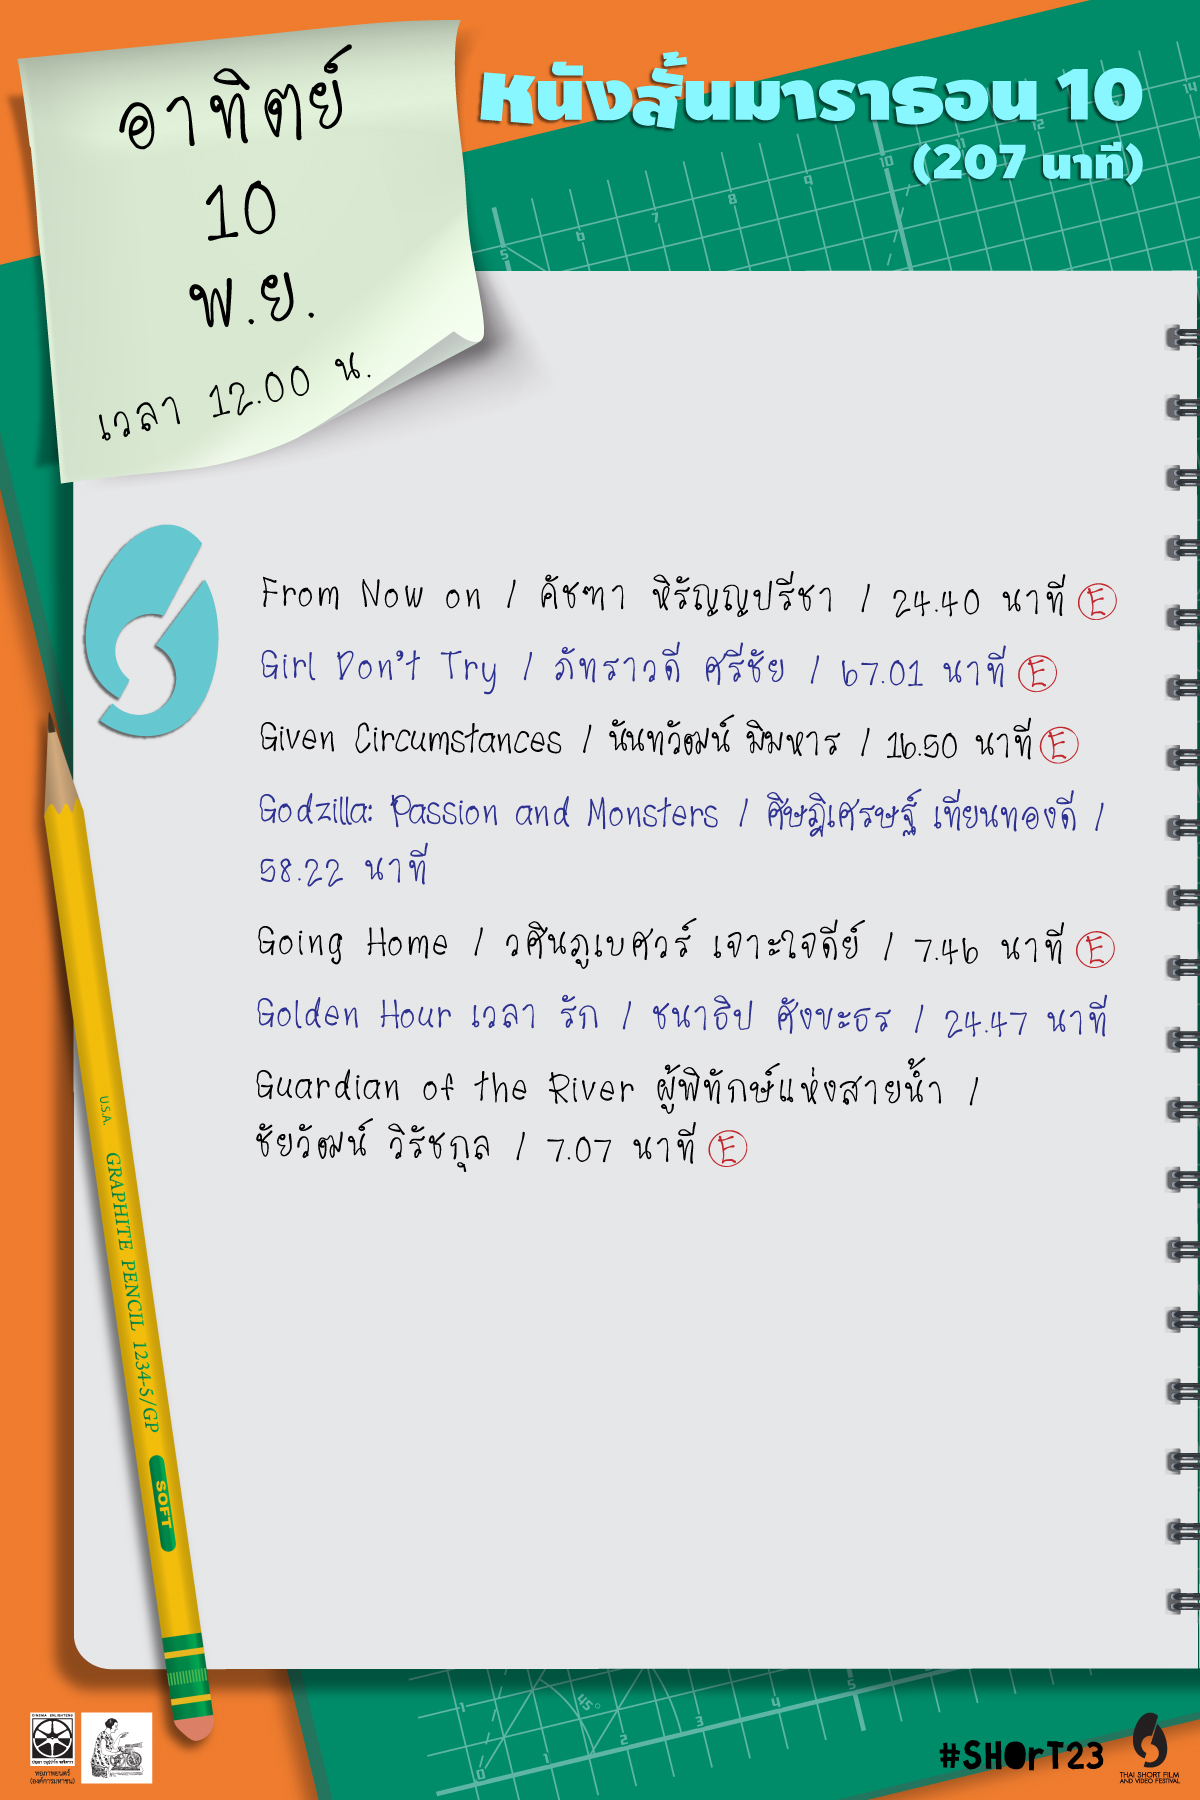 อาทิตย์
10
พ.ย.
เวลา 12.00 น.
หนังสั้นมาราธอน 10
(207 นาที)
From Now on / คัชฑา หิรัญญปรีชา / 24.40 นาที E
Girl Don't Try / ภัทราวดี ศรีชัย / 67.01 นาที E
Given Circumstances / นันทวัฒน์ มิมหาร / 16.50 นาที E
Godzilla: Passion and Monsters / ศิษฎิเศรษฐ์ เทียนทองดี /
58.22 นาที
Going Home / วศินภูเบศวร์ เจาะใจดีย์ / 7.46 นาที E
Golden Hour เวลา รัก / ชนาธิป ศังขะธร / 24.47 นาที
Guardian of the River ผู้พิทักษ์แห่งสายน้ำ /
ชัยวัฒน์ วิรัชกุล / 7.07 นาที E
U.S.A. GRAPHITE PENCIL 1234-5/GP SOFT
5 6 7 8 9 10 11 12 14
0 1 2 3 4 5
45°
หอภาพยนตร์
(องค์การมหาชน)
#SHOrT23
THAI SHORT FILM
AND VIDEO FESTIVAL